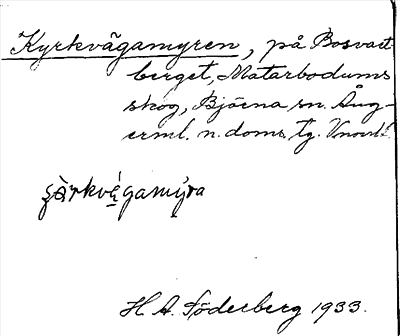 Kyrkvägamyren, på Bosvart
berget, Matarbodums
skog, Björna sn. Ång-
erml. n. doms. tg.
H A. Söderberg 1933.